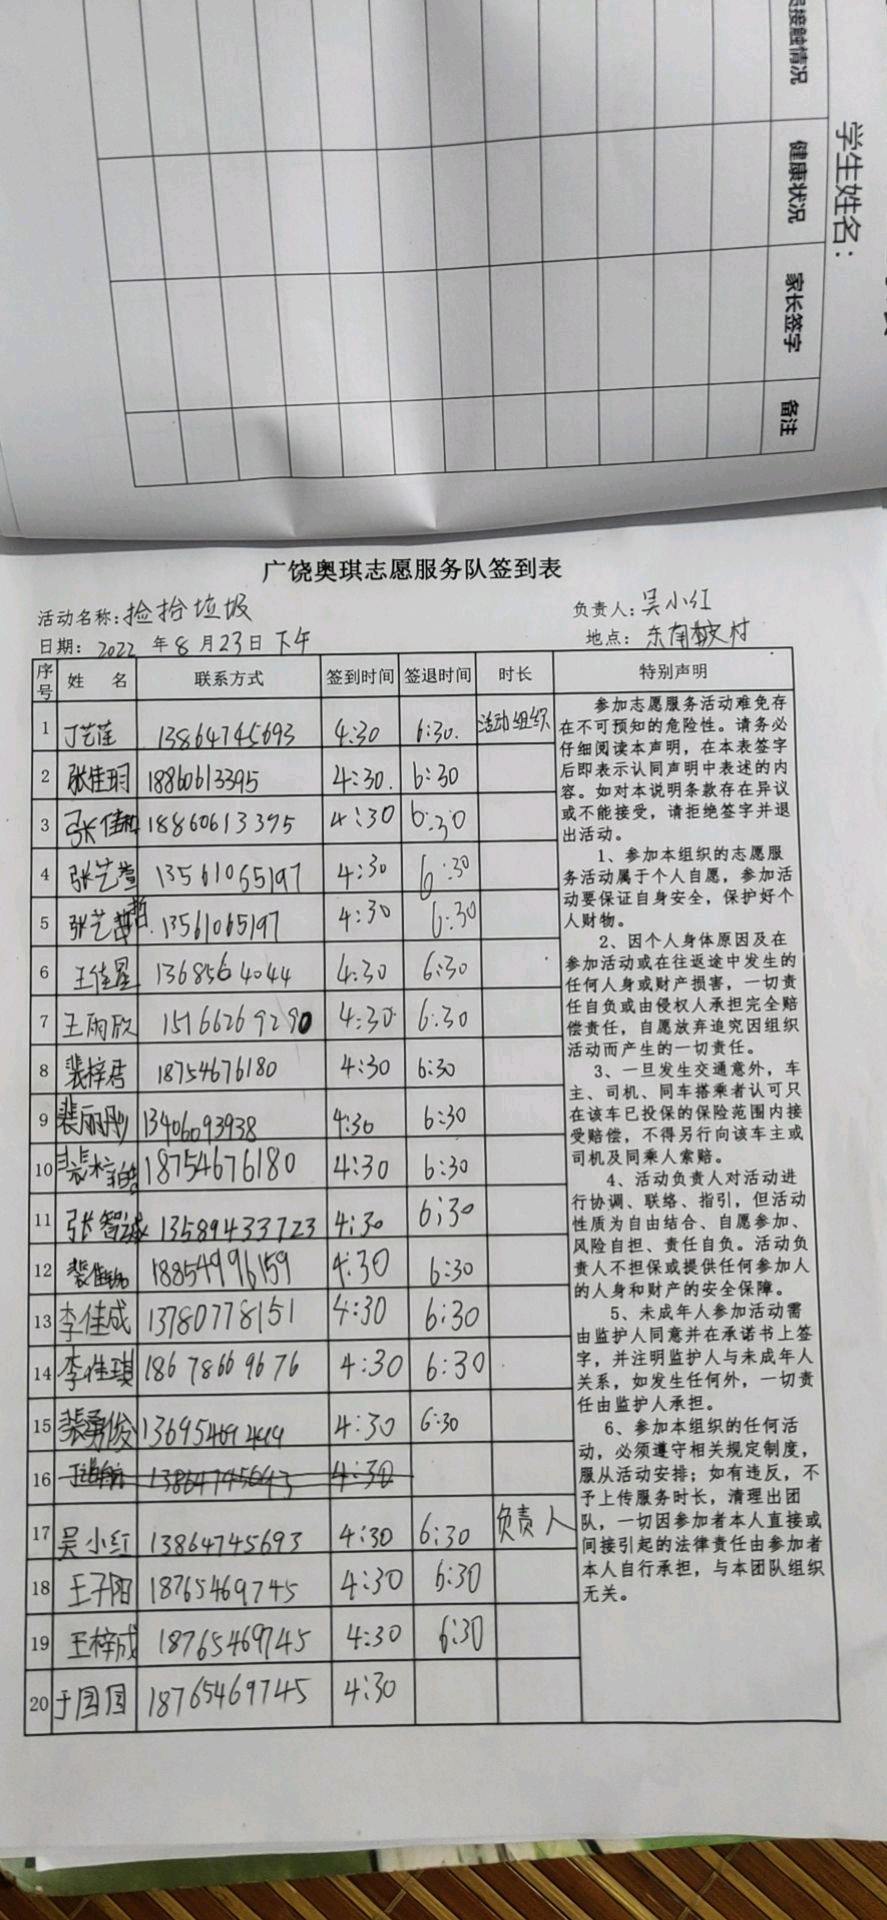 员接触情况
健康状况
家长签字
备注
学生姓名：
广饶奥琪志愿服务队签到表
活动名称：捡拾垃圾 负责人：吴小红
日期：2022年8月23日下午 地点：东南 村
序号 姓 名 联系方式 签到时间 签退时间 时长 特别声明
1 丁艺莲 13864745693 4:30 6:30. 活动组织
2 张佳玥 18860613395 4:30. 6:30
3 张佳 18860613395 4:30 6:30
4 张艺萱 13561065197 4:30 6:30
5 张艺哲 13561065197 4:30 6:30
6 王佳星 1368564044 4:30 6:30
7 王雨欣 15166269290 4:30 6:30
8 裴梓君 18754676180 4:30 6:30
9 裴丽 13406093938 4:30 6:30
10 裴梓 18754676180 4:30 6:30
11 张智诚 13589433723 4:30 6:30
12 裴佳 18854996159 4:30 6:30
13 李佳成 13780778151 4:30 6:30
14 李佳琪 18678669676 4:30 6:30
15 裴勇俊 13695469499 4:30 6:30
16 13864745693 4:30
17 吴小红 13864745693 4:30 6:30 负责人
18 王子阳 18765469745 4:30 6:30
19 王梓成 18765469745 4:30 6:30
20 于国国 18765469745 4:30
参加志愿服务活动难免存
在不可预知的危险性。请务必
仔细阅读本声明，在本表签字
后即表示认同声明中表述的内
容。如对本说明条款存在异议
或不能接受，请拒绝签字并退
出活动。
1、参加本组织的志愿服
务活动属于个人自愿，参加活
动要保证自身安全，保护好个
人财物。
2、因个人身体原因及在
参加活动或在往返途中发生的
任何人身或财产损害，一切责
任自负或由侵权人承担完全赔
偿责任，自愿放弃追究因组织
活动而产生的一切责任。
3、一旦发生交通意外，车
主、司机、同车搭乘者认可只
在该车已投保的保险范围内接
受赔偿，不得另行向该车主或
司机及同乘人索赔。
4、活动负责人对活动进
行协调、联络、指引，但活动
性质为自由结合、自愿参加、
风险自担、责任自负。活动负
责人不担保或提供任何参加人
的人身和财产的安全保障。
5、未成年人参加活动需
由监护人同意并在承诺书上签
字，并注明监护人与未成年人
关系，如发生任何外，一切责
任由监护人承担。
6、参加本组织的任何活
动，必须遵守相关规定制度，
服从活动安排；如有违反，不
予上传服务时长，清理出团
队，一切因参加者本人直接或
间接引起的法律责任由参加者
本人自行承担，与本团队组织
无关。